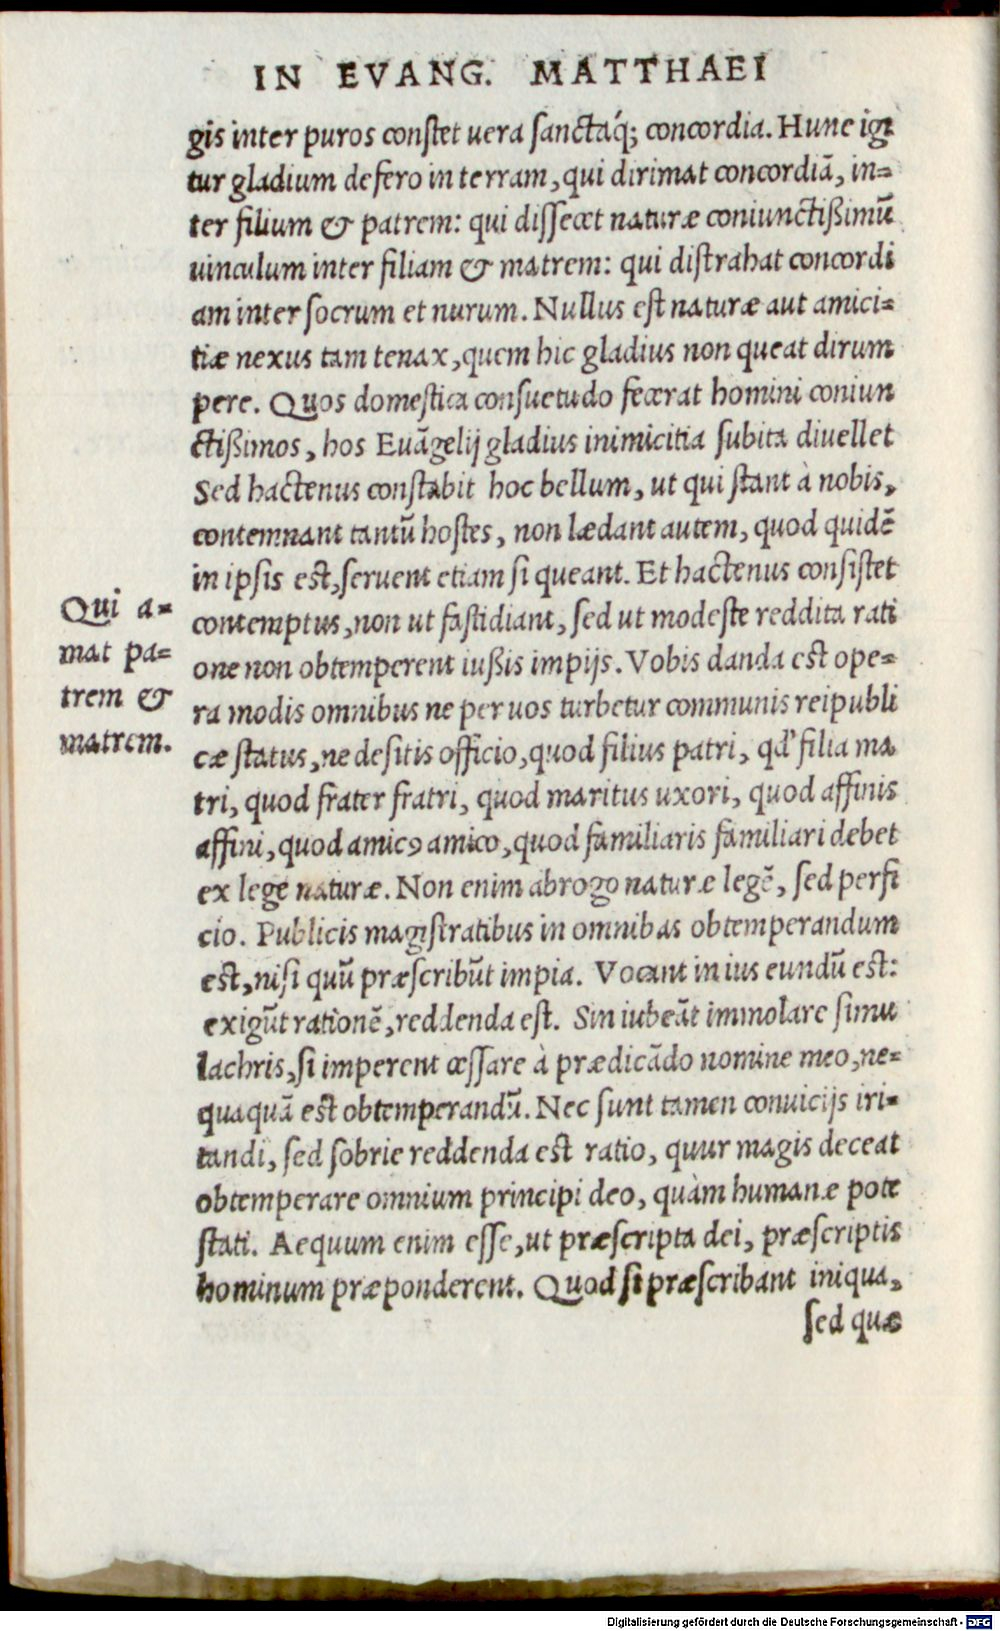 IN EVANG. MATTHAEI
gis inter puros constet uera sanctaq́; concordia. Hunc igi
tur gladium defero in terram, qui dirimat concordiã, in=
ter filium & patrem: qui dissecet naturæ coniunctißimũ
uinculum inter filiam & matrem: qui distrahat concordi
am inter socrum et nurum. Nullus est naturæ aut amici=
tiæ nexus tam tenax, quem hic gladius non queat dirum
pere. Quos domestica consuetudo fecerat homini coniun
ctißimos, hos Euãgelij gladius inimicitia subita diuellet
Sed hactenus constabit hoc bellum, ut qui stant à nobis,
contemnant tantũ hostes, non lædant autem, quod quidẽ
in ipsis est, seruent etiam si queant. Et hactenus consistet
contemptus, non ut fastidiant, sed ut modeste reddita rati
one non obtemperent iußis impijs. Vobis danda est ope=
ra modis omnibus ne per uos turbetur communis reipubli
cæ status, ne desitis officio, quod filius patri, qđ filia ma
tri, quod frater fratri, quod maritus uxori, quod affinis
affini, quod amicꝯ amico, quod familiaris familiari debet
ex lege naturæ. Non enim abrogo naturæ legẽ, sed perfi
cio. Publicis magistratibus in omnibas obtemperandum
est, nisi quũ præscribũt impia. Vocant in ius eundũ est:
exigũt rationẽ, reddenda est. Sin iubeãt immolare simu
lachris, si imperent cessare à prædicãdo nomine meo, ne=
quaquã est obtemperandũ. Nec sunt tamen conuicijs iri=
tandi, sed sobrie reddenda est ratio, quur magis deceat
obtemperare omnium principi deo, quàm humanæ pote
stati. Aequum enim esse, ut præscripta dei, præscriptis
hominum præponderent. Quod si præscribant iniqua,
sed quæ
Qui a=
mat pa=
trem &
matrem.
Digitalisierung gefördert durch die Deutsche Forschungsgemeinschaft - DFG